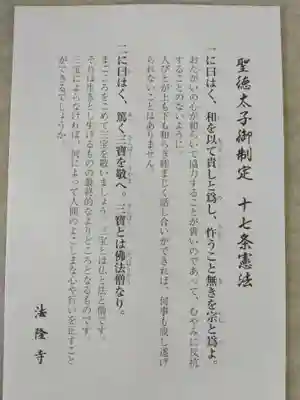 聖徳太子御制定 十七条憲法
一に曰はく、和を以て貴しと爲し、忤うこと無きを宗と爲よ。
おたがいの心が和らいで協力することが貴いのであって、むやみに反抗
することのないように
人びとが上も下も和らぎ睦まじく話し合いができれば、何事も成し遂げ
られないことはありません。
二に曰はく、篤く三寶を敬へ。三寶とは佛法僧なり。
まごころをこめて三宝を敬いましょう 三宝とは仏と法と僧です。
それは生きとし生けるものの最終的なよりどころとなるものです。
三宝によらなければ、何によって人間のよこしまな心や行いを正すこと
ができるでしょうか
法隆寺